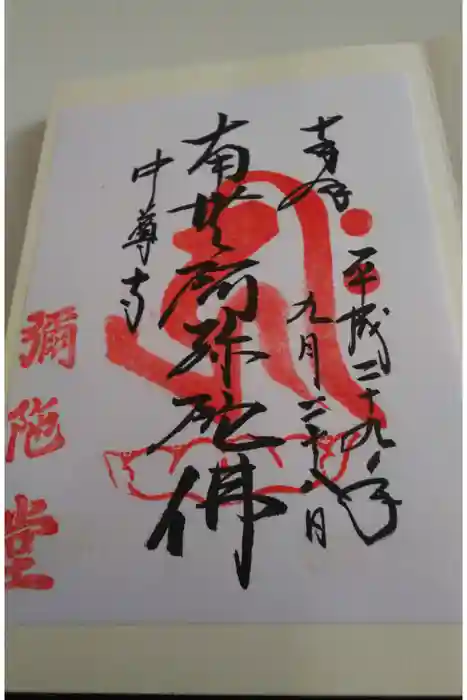 奉拝
平成二十九年
九月二十八日
南無阿弥陀佛
中尊寺
彌陀堂